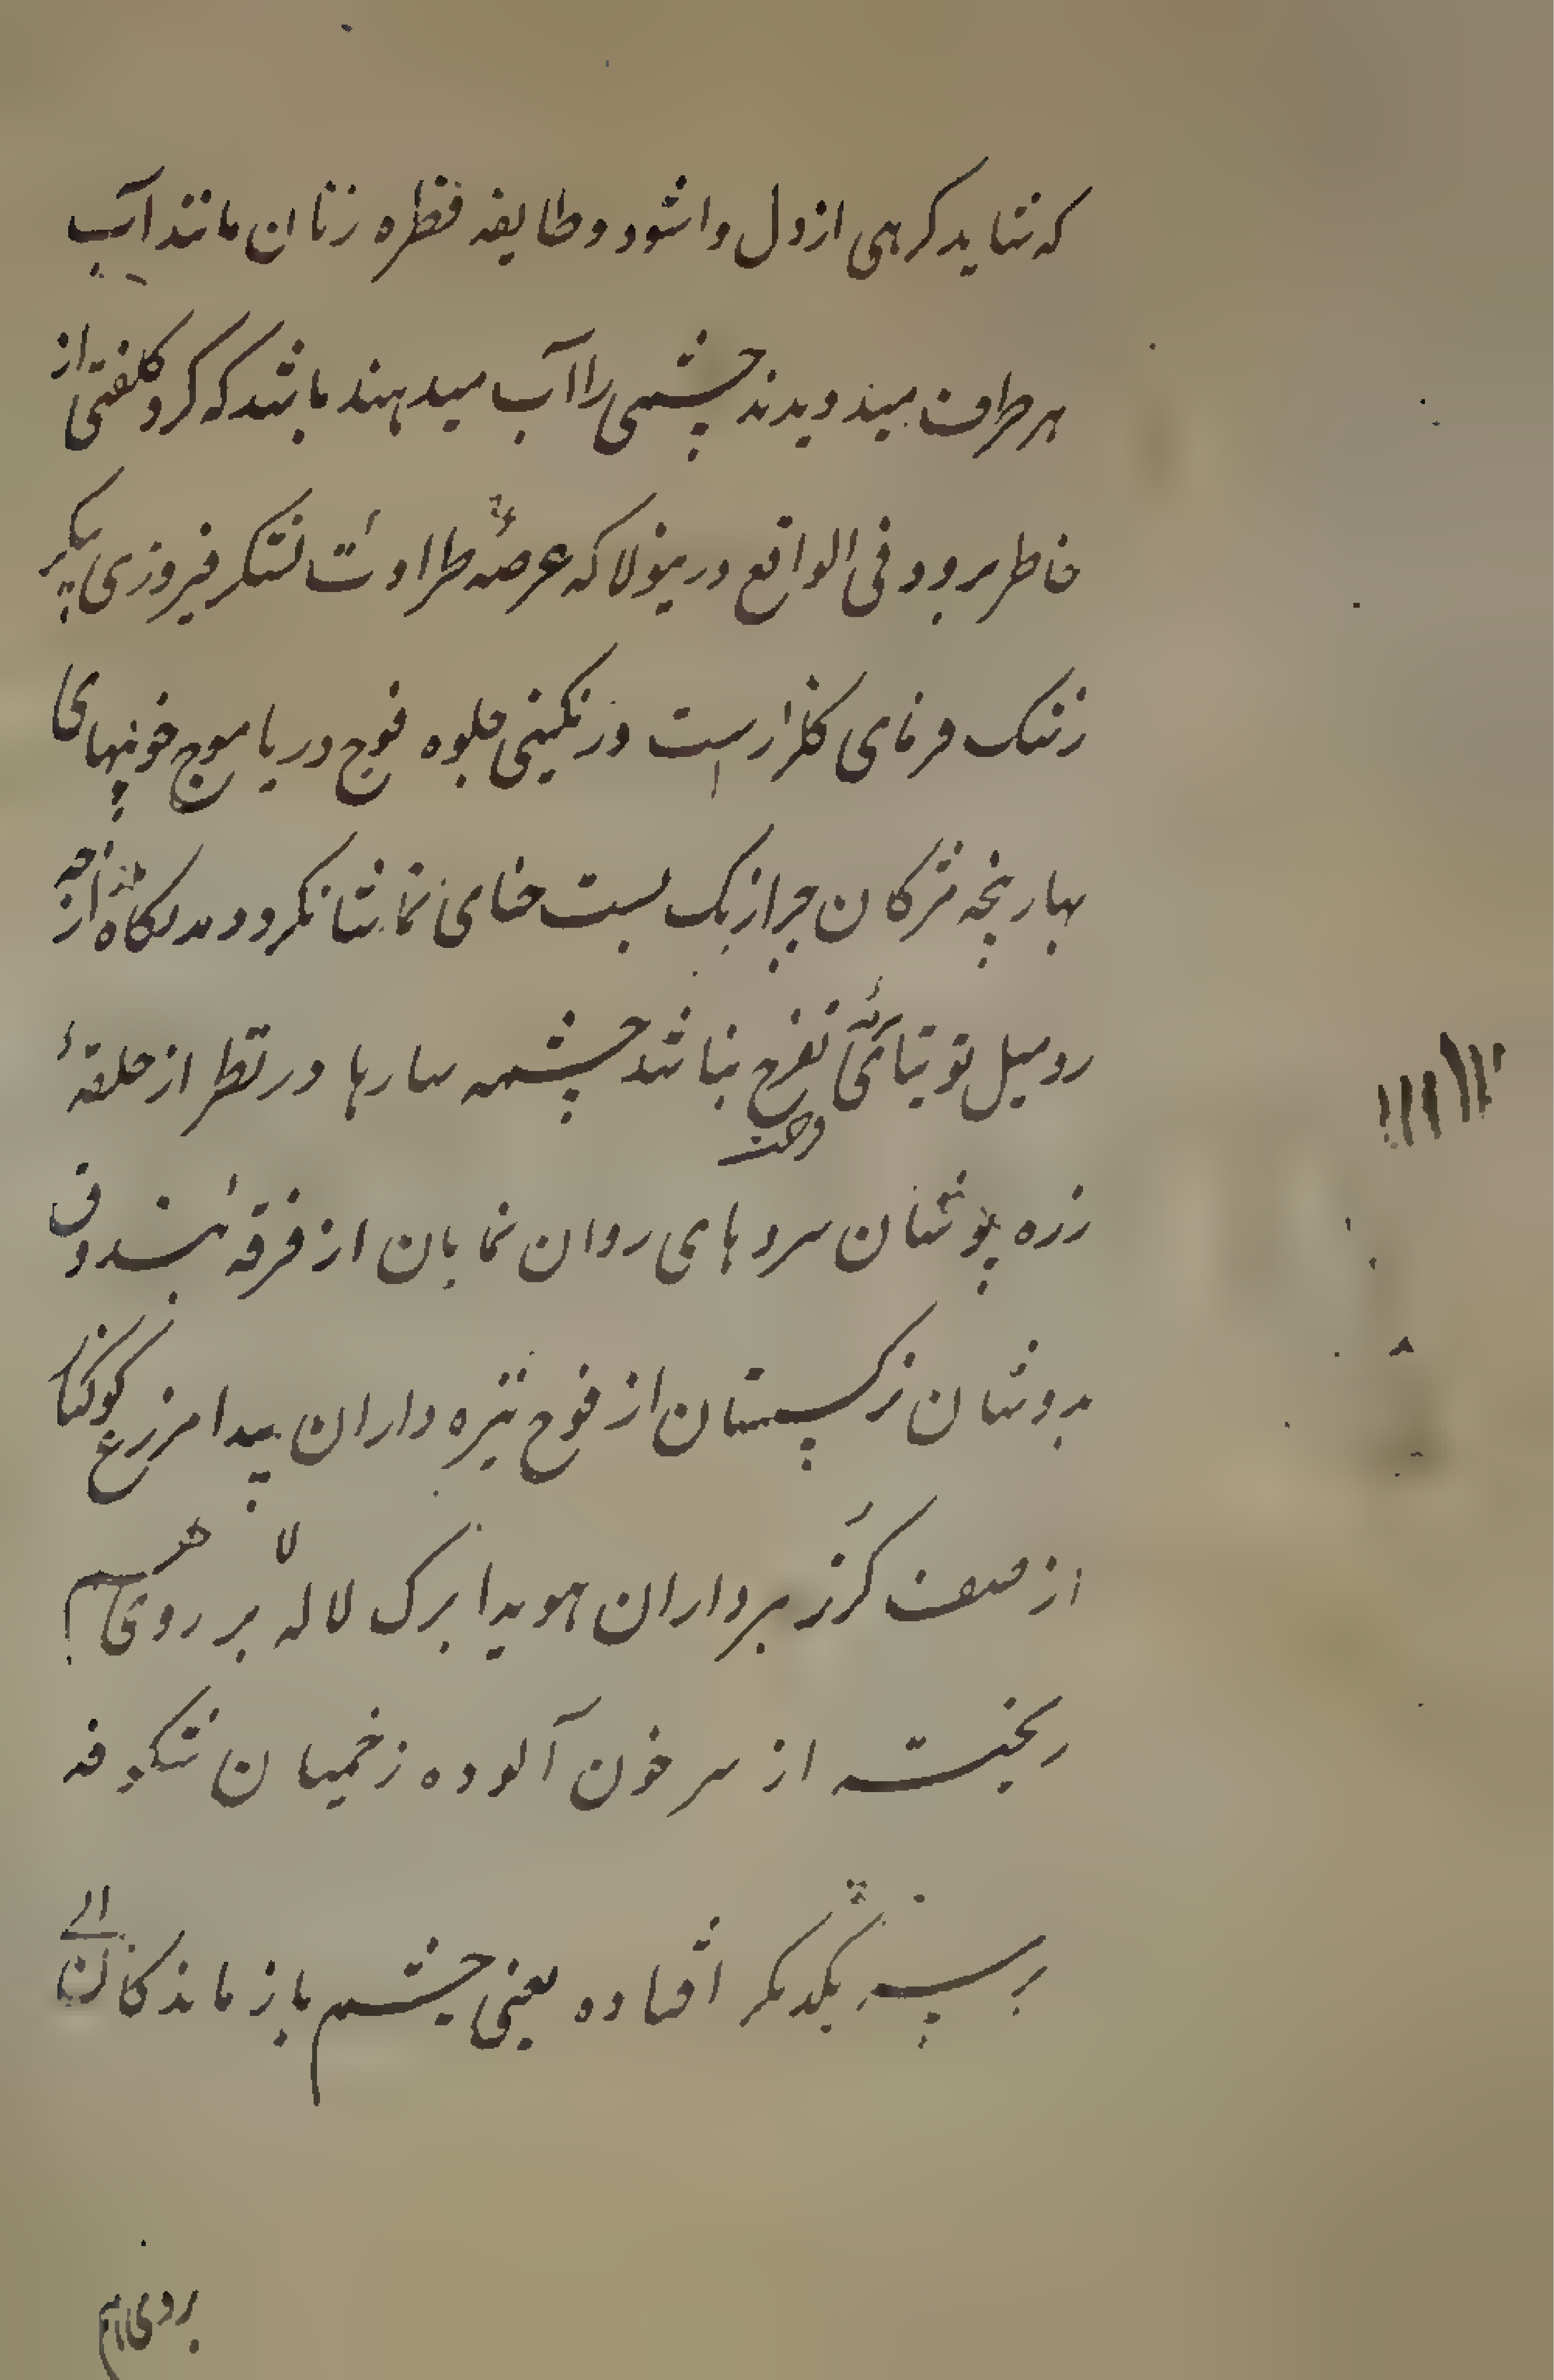 که شاید کرهی از دل واشود و طایفه قطره زنان مانند آب
هر طرف میدویدند چشمی را آب میدهند باشد که کرد کلفتی از
خاطر برود فی الواقع درینولا که عرصه طراوت لشکر فیروزی پیکر
رنک فرمای کلزار است و رنکینی جلوه فوج دریا موج خونبهای
بهار پنجه مژکان چرا زیک بست حنای تماشا نکرد و دیده نکاه از چه
رو میل توتیای تفرج نباشد چشمه سارها در نظر از حلقهٔ
زره پوشان سروهای روان نمایان از فرقه بندوق
بدوشان نرکسستان از فوج نیزه داران پیدا مزرع کوکنار
از صف کرز برداران هویدا برک لاله بر روی هم
ریخته از سر خون آلوده زخمیان شکوفه
بر سینه یکدیکر افتاده یعنی چشم باز ماندکان
بروی هم